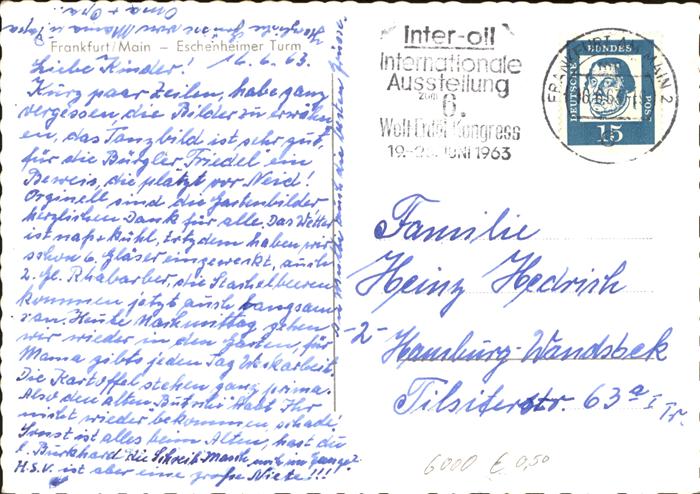 Herzliche Grüße von Mama u. Papa
Oma + Opa
Frankfurt/Main – Eschenheimer Turm
16.6.63.
Liebe Kinder!
Kurz paar Zeilen, habe ganz
vergessen die Bilder zu erwähn
en, das Tanzbild ist sehr gut,
für die Bürgler Friedel ein
Beweis, die platzt vor Neid!
Orginell sind die Gartenbilder
herzlichen Dank für alle. Das Wetter
ist naß + kühl, trotzdem haben wir
schon 6. Gläser eingeweckt, auch
2. Gl. Rhabarber, die Stachelbeeren
kommen jetzt auch langsam
ran. Heute Nachmittag gehen
wir wieder in den Garten, für
Mama gibts jeden Tag Werkarbeit
Die Kartoffel stehen ganz prima.
Also den alten habt Ihr
nicht wieder bekommen schade!
Sonst ist alles beim Alten, hast du
l. Burkhard die Schreib Masch
H.S.V. ist aber eine große Niete!!!
inter-oil
Internationale
Ausstellung
zum
6.
Welt Erdöl Kongress
19.-26. JUNI 1963
FRANKFURT AM MAIN 2
DEUTSCHE BUNDESPOST
15
Familie
Heinz Hedrich
-2- Hamburg-Wandsbek
Tilsiterstr. 63a I Tr.
6000 € 0,50